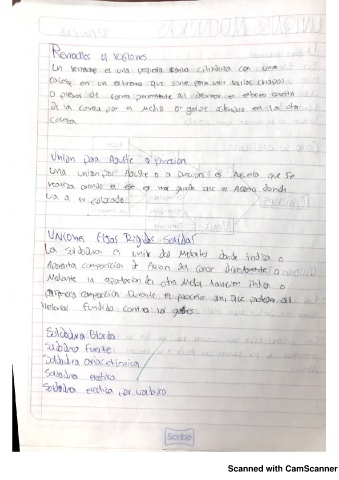 Remaches y roblones
Un remache es una pequeña barra cilíndrica con una
cabeza en un extremo que sirve para unir varias chapas
o piezas de forma permanente al deformar el extremo opuesto
de la cabeza por el medio o golpe
Union por Ajuste o presion
Una union por Ajuste o a presion es Aquella que se
realiza cuando el eje es mas grande que el Agujero donde
va a ir
Uniones Fijas Rigidas soldadas
La soldadura es unir dos Metales de
composicion Accion del calor directamente o
Mediante la aportacion de otro Metal tambien
composicion Durante el proceso hay que proteger al
Material Fundido contra los gases.
Soldadura Blanda
Soldadura Fuerte
Soldadura oxiacetilenica
Soldadura electrica
Soldadura electrica por
Scribe
Scanned with CamScanner